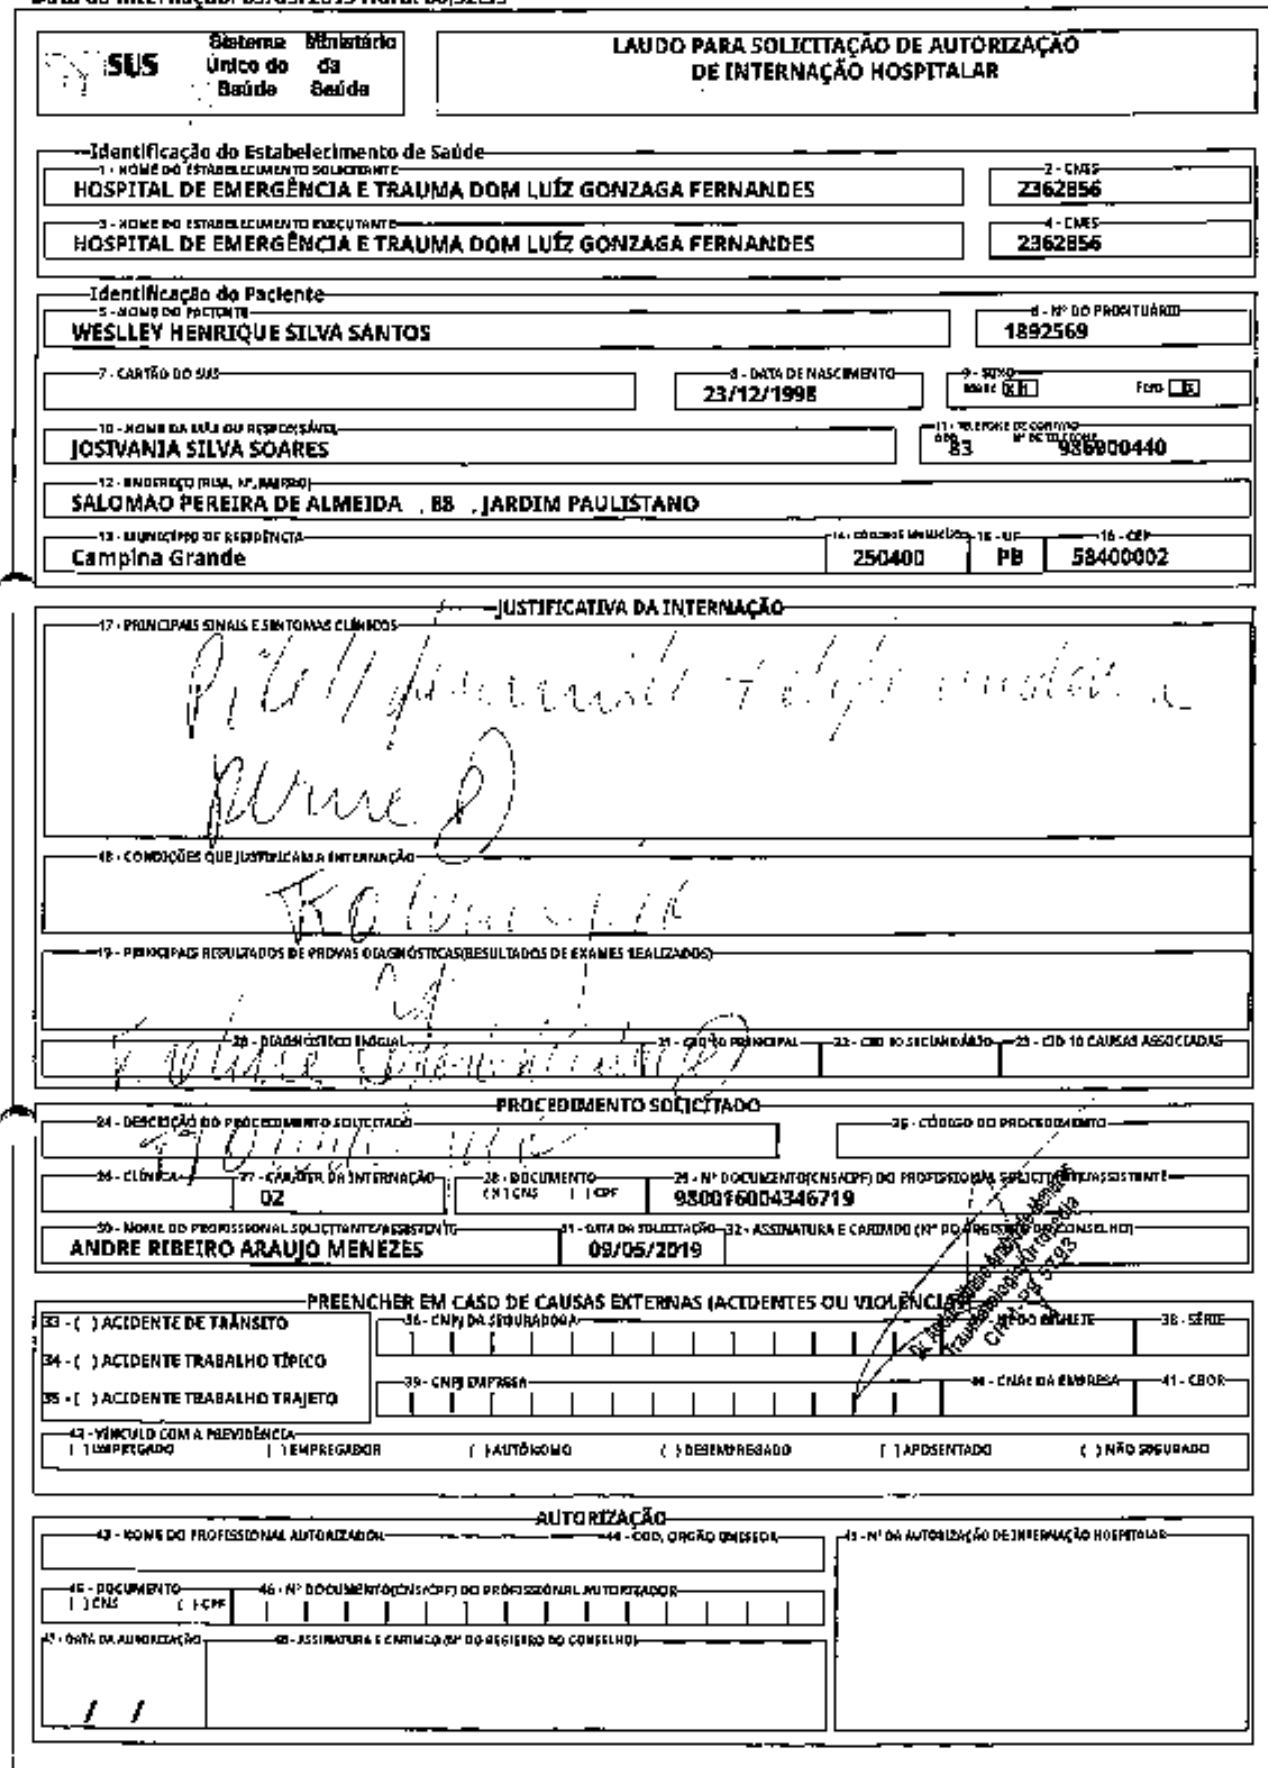 SUS
Sistema Único do Saúde
Ministério da Saúde
LAUDO PARA SOLICITAÇÃO DE AUTORIZAÇÃO
DE INTERNAÇÃO HOSPITALAR
Identificação do Estabelecimento de Saúde
1 - NOME DO ESTABELECIMENTO SOLICITANTE
HOSPITAL DE EMERGÊNCIA E TRAUMA DOM LUÍZ GONZAGA FERNANDES
2 - CNES
2362856
3 - NOME DO ESTABELECIMENTO EXECUTANTE
HOSPITAL DE EMERGÊNCIA E TRAUMA DOM LUÍZ GONZAGA FERNANDES
4 - CNES
2362856
Identificação do Paciente
5 - NOME DO PACIENTE
WESLLEY HENRIQUE SILVA SANTOS
6 - Nº DO PRONTUÁRIO
1892569
7 - CARTÃO DO SUS
8 - DATA DE NASCIMENTO
23/12/1998
9 - SEXO
10 - NOME DA MÃE OU RESPONSÁVEL
JOSIVANIA SILVA SOARES
11 - TELEFONE DE CONTATO
DDD Nº DE TELEFONE
83 986900440
12 - ENDEREÇO (RUA, Nº, BAIRRO)
SALOMAO PEREIRA DE ALMEIDA , 88 , JARDIM PAULISTANO
13 - MUNICÍPIO DE RESIDÊNCIA
Campina Grande
250400
15 - UF
PB
16 - CEP
58400002
JUSTIFICATIVA DA INTERNAÇÃO
17 - PRINCIPAIS SINAIS E SINTOMAS CLÍNICOS
perna D
18 - CONDIÇÕES QUE JUSTIFICAM A INTERNAÇÃO
19 - PRINCIPAIS RESULTADOS DE PROVAS DIAGNÓSTICAS(RESULTADOS DE EXAMES REALIZADOS)
20 - DIAGNÓSTICO INICIAL
21 - CID 10 PRINCIPAL
22 - CID 10 SECUNDÁRIO
23 - CID 10 CAUSAS ASSOCIADAS
PROCEDIMENTO SOLICITADO
24 - DESCRIÇÃO DO PROCEDIMENTO SOLICITADO
25 - CÓDIGO DO PROCEDIMENTO
26 - CLÍNICA
27 - CARÁTER DA INTERNAÇÃO
02
28 - DOCUMENTO
( X ) CNS ( ) CPF
29 - Nº DOCUMENTO(CNS/CPF) DO PROFISSIONAL SOLICITANTE/ASSISTENTE
980016004346719
30 - NOME DO PROFISSIONAL SOLICITANTE/ASSISTENTE
ANDRE RIBEIRO ARAUJO MENEZES
31 - DATA DA SOLICITAÇÃO
09/05/2019
32 - ASSINATURA E CARIMBO (Nº DO REGISTRO DO CONSELHO)
Traumatologia/Ortopedia
CRM-PB 5793
PREENCHER EM CASO DE CAUSAS EXTERNAS (ACIDENTES OU VIOLÊNCIA)
33 - ( ) ACIDENTE DE TRÂNSITO
34 - ( ) ACIDENTE TRABALHO TÍPICO
35 - ( ) ACIDENTE TRABALHO TRAJETO
36 - CNPJ DA SEGURADORA
Nº DO BILHETE
38 - SÉRIE
39 - CNPJ EMPRESA
40 - CNAE DA EMPRESA
41 - CBOR
42 - VÍNCULO COM A PREVIDÊNCIA
( ) EMPREGADO ( ) EMPREGADOR ( ) AUTÔNOMO ( ) DESEMPREGADO ( ) APOSENTADO ( ) NÃO SEGURADO
AUTORIZAÇÃO
43 - NOME DO PROFISSIONAL AUTORIZADOR
44 - COD. ORGÃO EMISSOR
45 - Nº DA AUTORIZAÇÃO DE INTERNAÇÃO HOSPITALAR
45 - DOCUMENTO
( ) CNS ( ) CPF
46 - Nº DOCUMENTO(CNS/CPF) DO PROFISSIONAL AUTORIZADOR
47 - DATA DA AUTORIZAÇÃO
/ /
48 - ASSINATURA E CARIMBO (Nº DO REGISTRO DO CONSELHO)